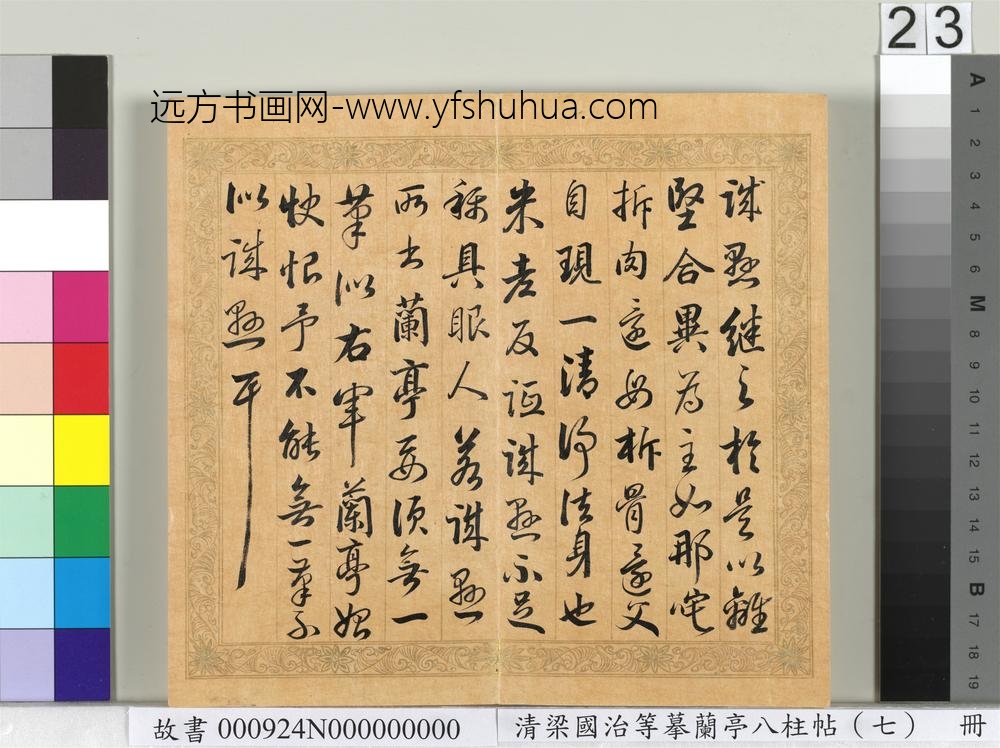 23
远方书画网-www.yfshuhua.com
誠懸繼之於是以離
堅合異為主如那吒
拆肉還母析骨還父
自現一清淨法身也
米老反詆誠懸不足
稱具眼人若誠懸
所書蘭亭要須無一
筆似右軍蘭亭始
快恨予不能無一筆不
似誠懸耳
A
1
2
3
4
5
6
M
8
9
10
11
12
13
14
15
B
17
18
19
故書 000924N000000000
清梁國治等摹蘭亭八柱帖（七） 冊